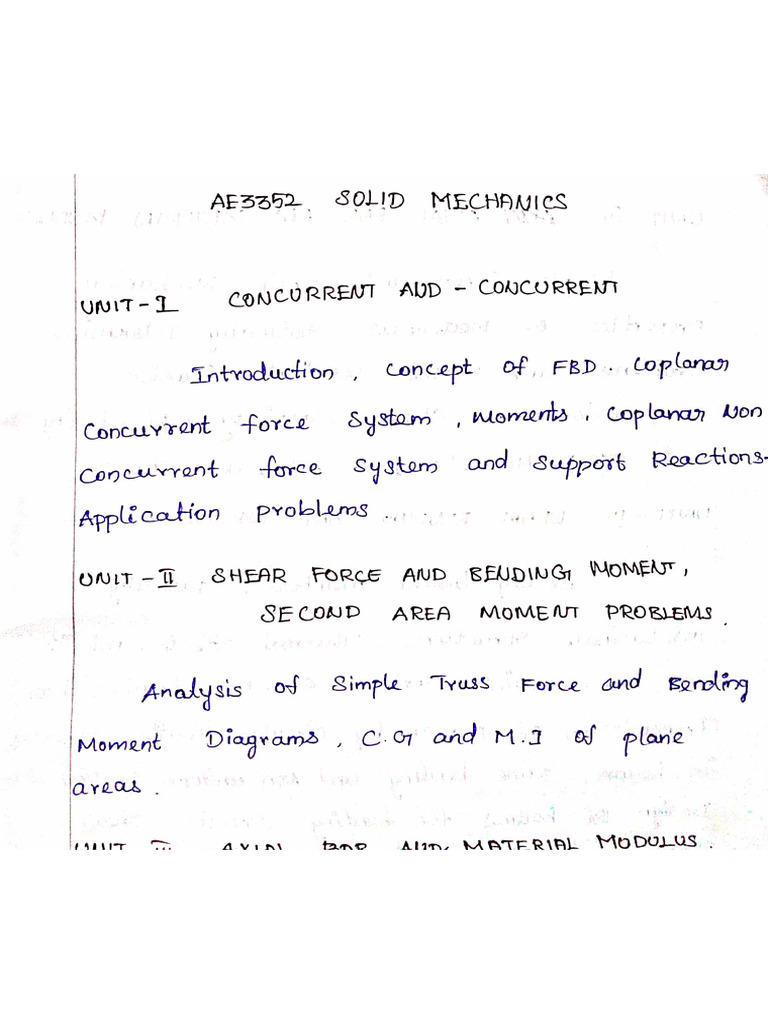 AE3352. SOLID MECHANICS
UNIT-I CONCURRENT AND - CONCURRENT
Introduction, concept of FBD. Coplanar
Concurrent force System, Moments, Coplanar Non
Concurrent force System and Support Reactions-
Application Problems.
UNIT-II SHEAR FORCE AND BENDING MOMENT,
SECOND AREA MOMENT PROBLEMS.
Analysis of Simple Truss Force and Bending
Moment Diagrams, C.G and M.I of plane
areas.
UNIT III AXIAL BAR AND MATERIAL MODULUS.